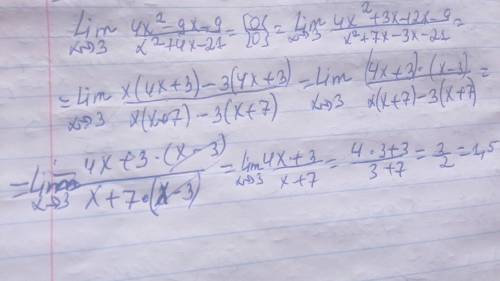 lim x→3 (4x² - 9x - 9)/(x² + 4x - 21) = {0/0} = lim x→3 (4x² + 3x - 12x - 9)/(x² + 7x - 3x - 21) =
= lim x→3 (x(4x+3) - 3(4x+3))/(x(x+7) - 3(x+7)) = lim x→3 ((4x+3)·(x-3))/(x(x+7) - 3(x+7)) =
= lim x→3 (4x+3·(x-3))/(x+7·(x-3)) = lim x→3 (4x+3)/(x+7) = (4·3+3)/(3+7) = 3/2 = 1,5